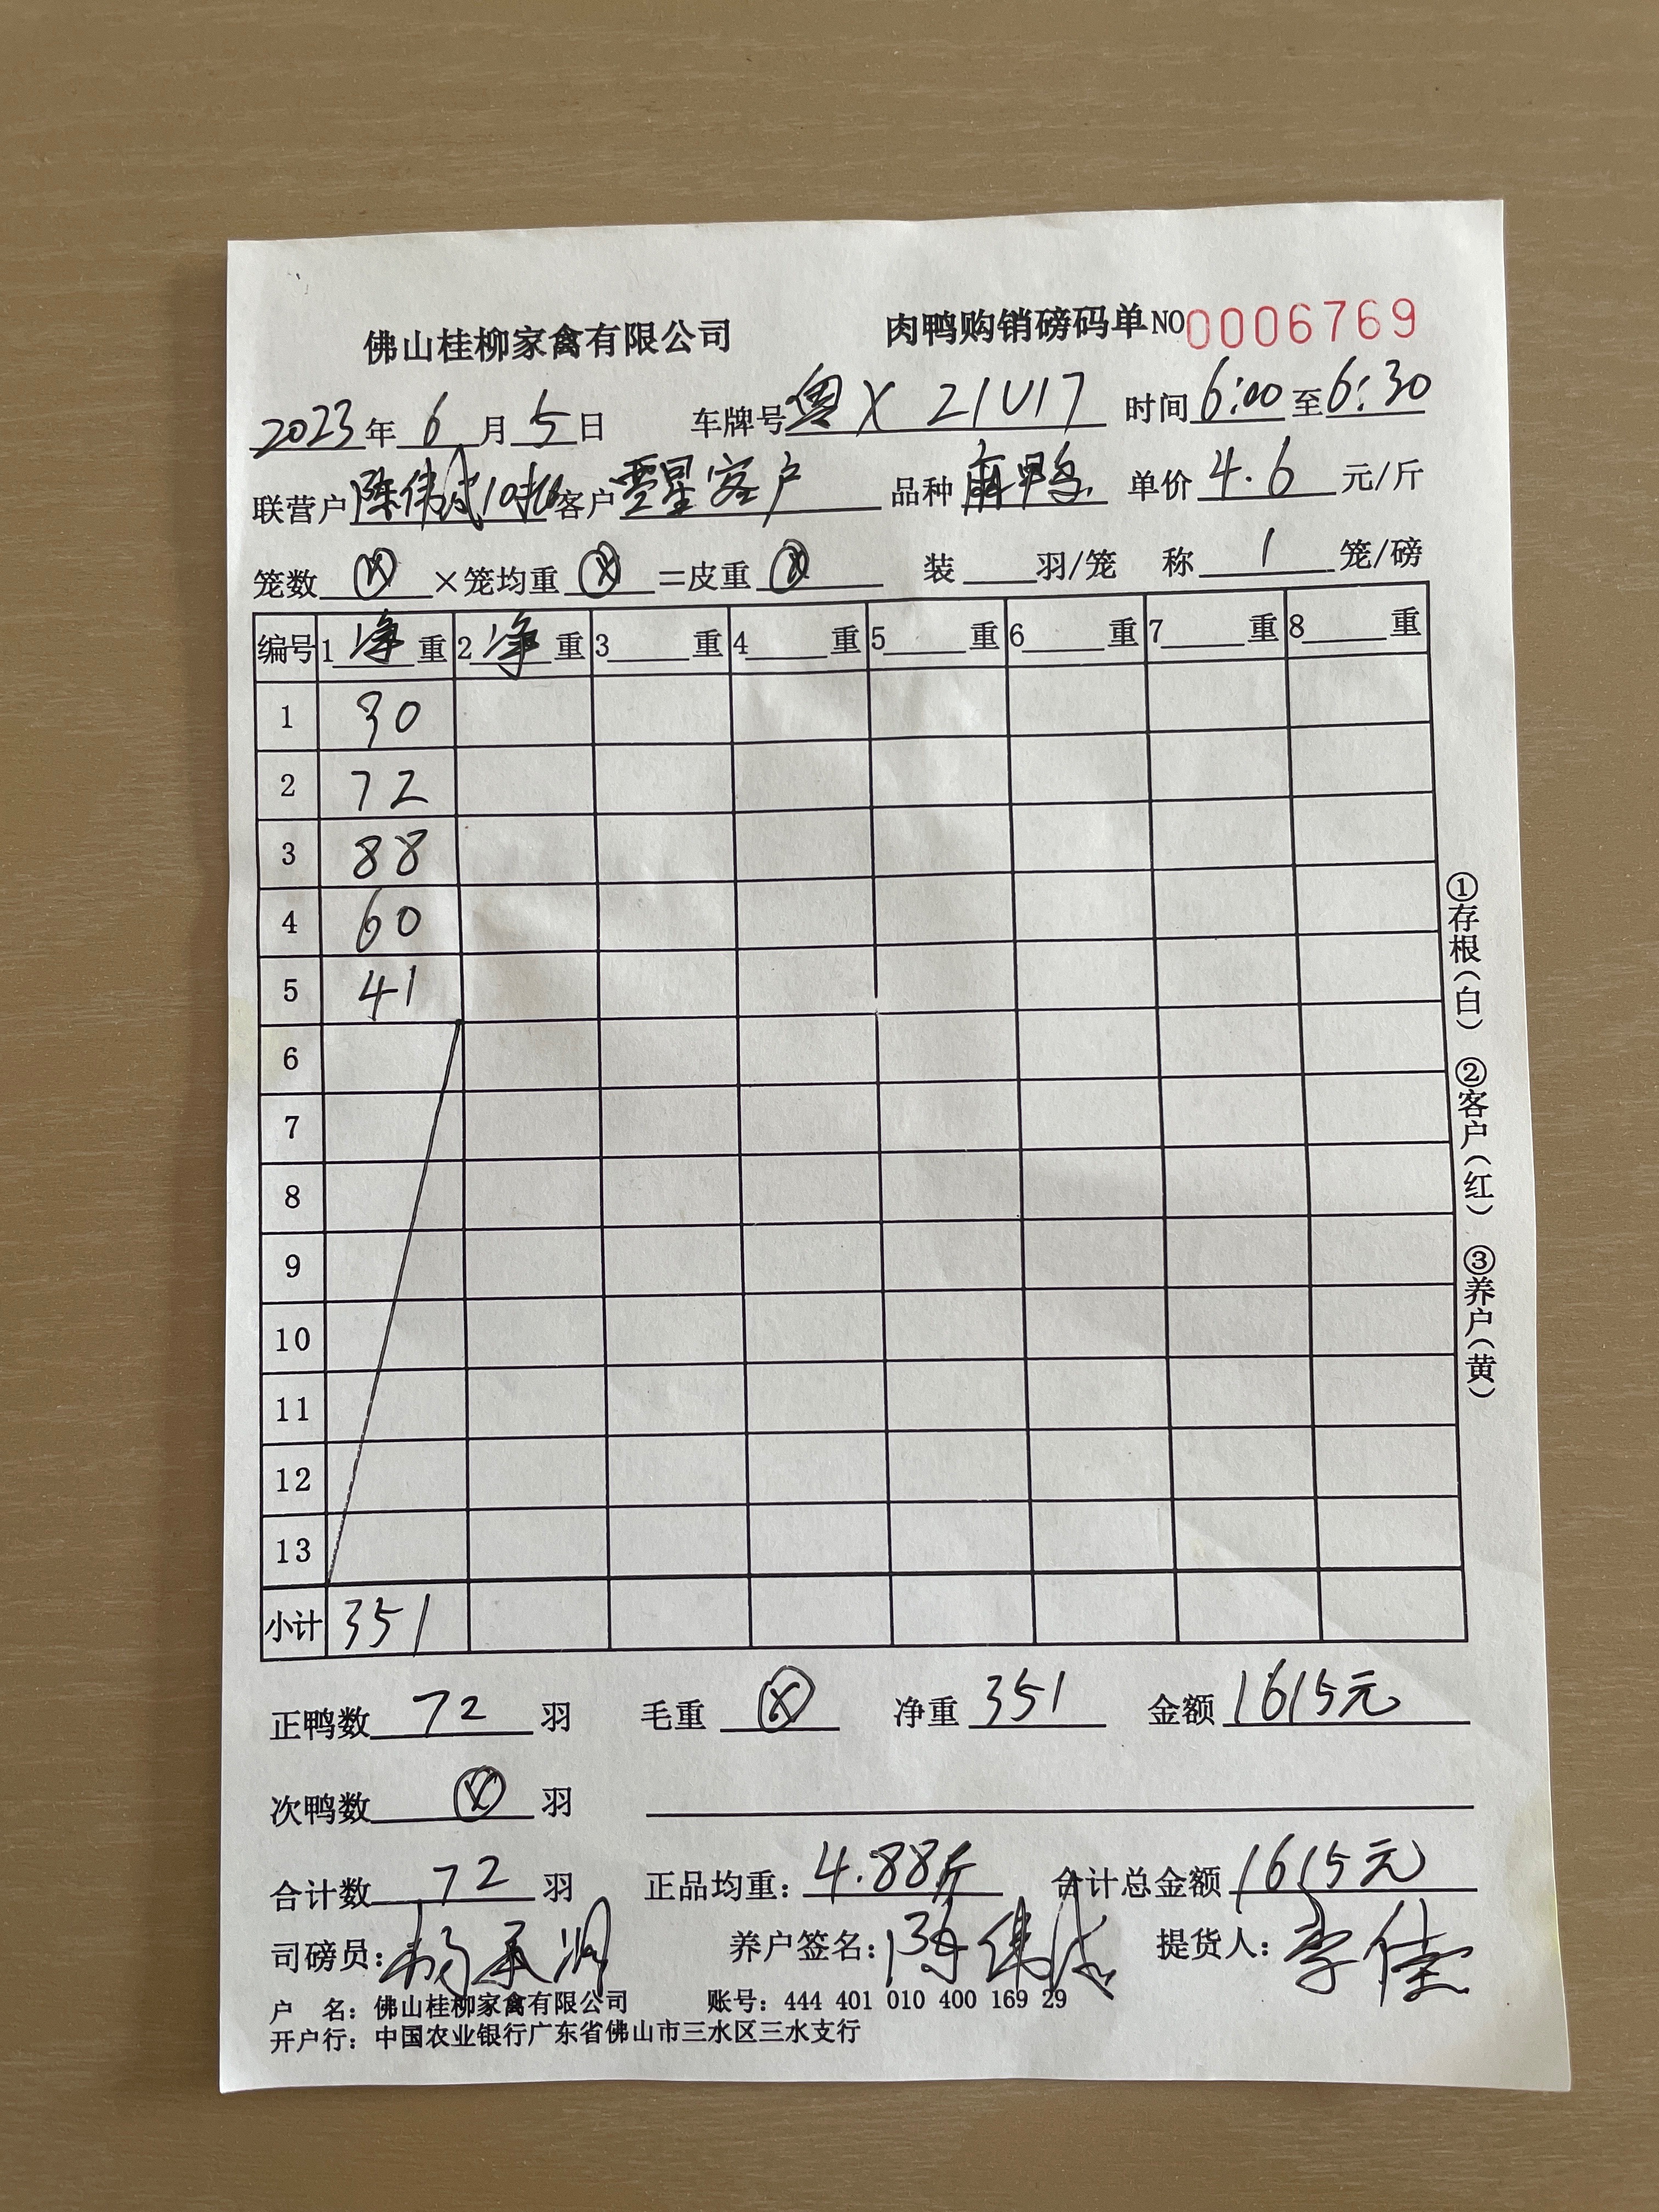 佛山桂柳家禽有限公司 肉鸭购销磅码单NO0006769
2023年6月5日 车牌号粤X 21U17 时间6:00至6:30
联营户陈伟成10批客户贾星客户 品种麻鸭 单价4.6元/斤
笼数ⓧ×笼均重ⓧ=皮重ⓧ 装 羽/笼 称1笼/磅
编号 1净重 2净重 3重 4重 5重 6重 7重 8重
1 90
2 72
3 88
4 60
5 41
6
7
8
9
10
11
12
13
小计 351
正鸭数72羽 毛重ⓧ 净重351 金额1615元
次鸭数ⓧ羽
合计数72羽 正品均重：4.88斤 合计总金额1615元
司磅员：杨 养户签名：陈伟成 提货人：李佳
户 名：佛山桂柳家禽有限公司 账号：444 401 010 400 169 29
开户行：中国农业银行广东省佛山市三水区三水支行
①存根（白） ②客户（红） ③养户（黄）